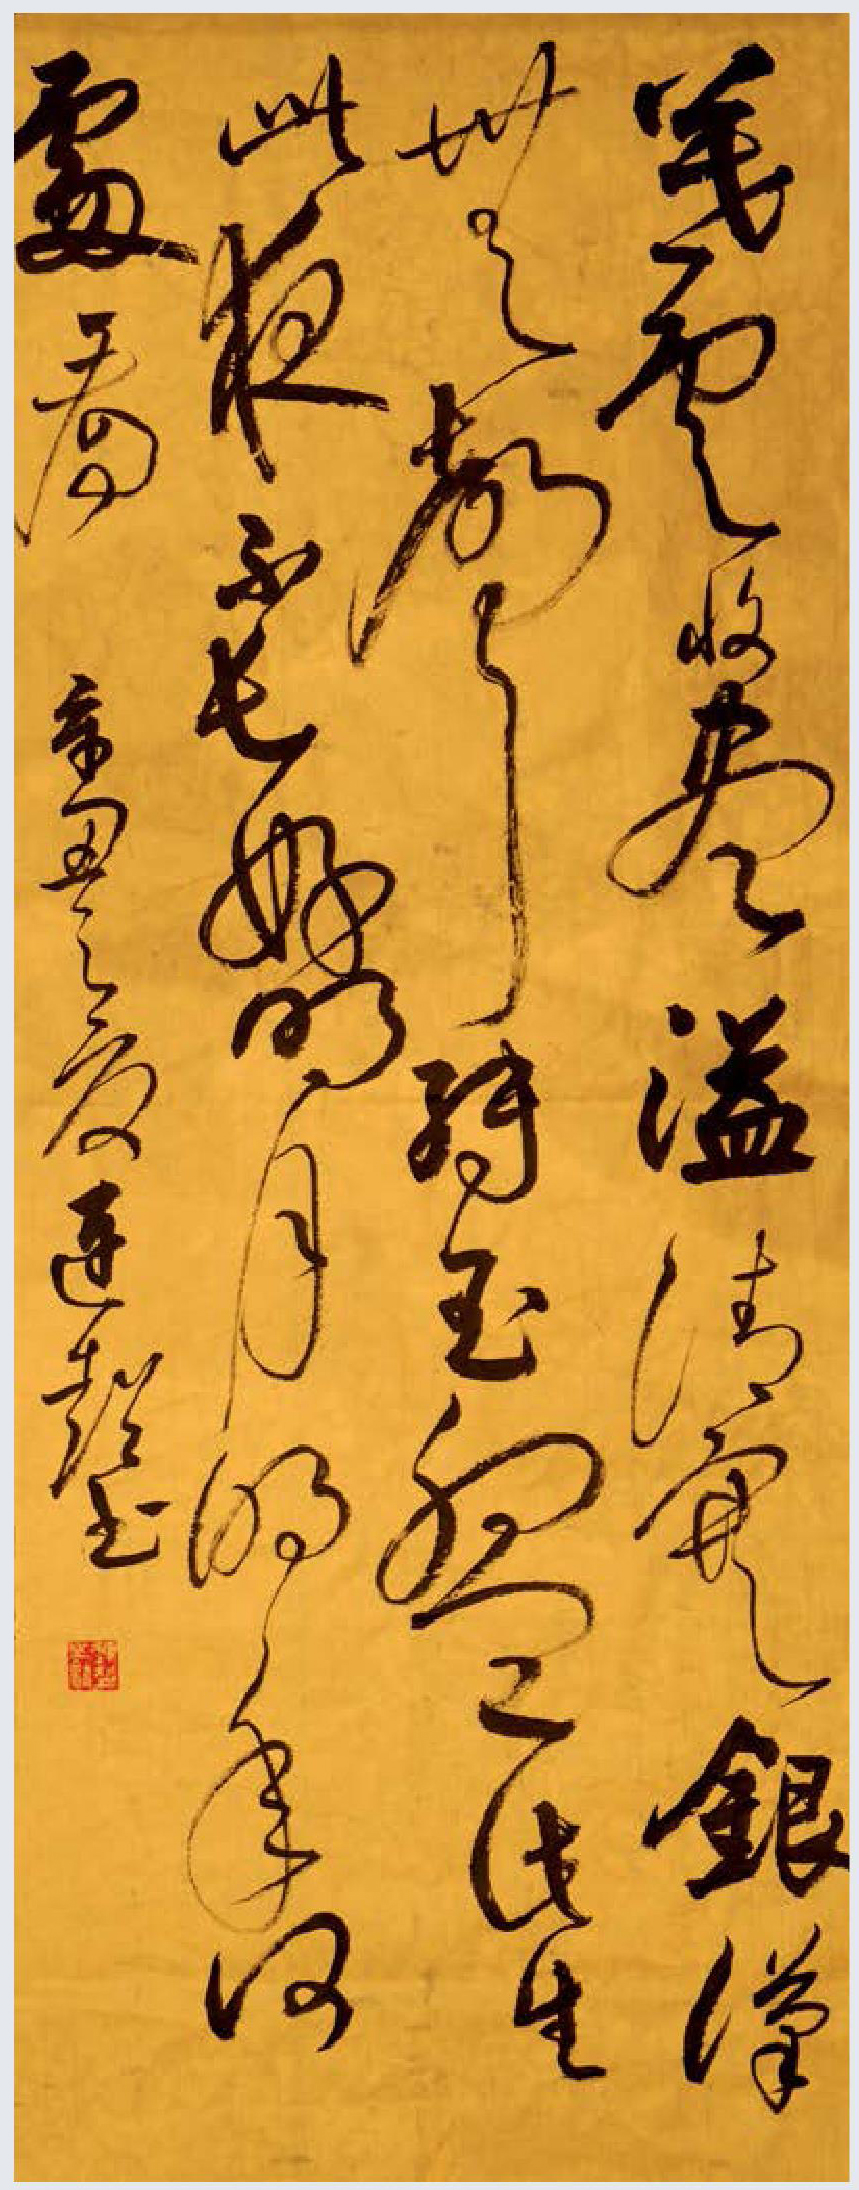 暮雲收盡溢清寒銀漢
無聲轉玉盤此生
此夜不長好明月明年何
處看 辛丑之夏連